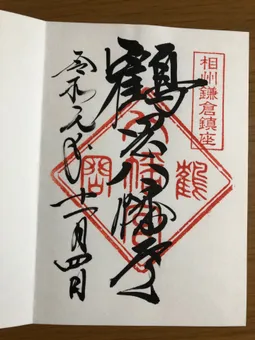 相州鎌倉鎮座
鶴岡八幡宮
令和元年十一月四日